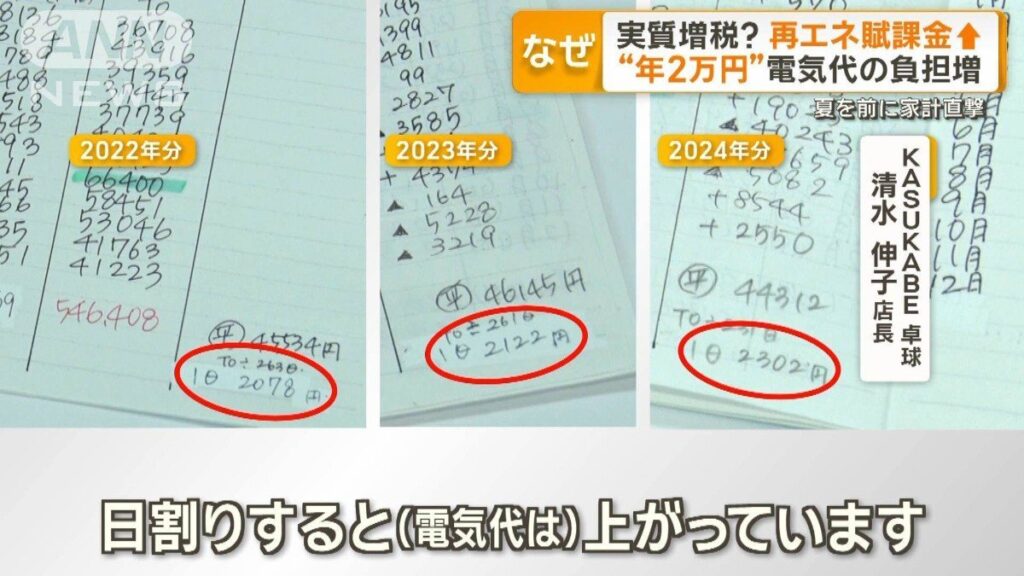 ANN
NEWS
なぜ
実質増税? 再エネ賦課金↑
“年2万円”電気代の負担増
夏を前に家計直撃
2022年分
37739
66400
58451
53046
41763
41223
546,408
㊥ 45534円
TO÷263日.
1日 2078円
2023年分
99
2827
▲3585
▲ 164
▲ 5228
▲ 3219
㊥ 46145円
TO÷261日
1日 2122円
2024年分
▲ 40243
+ 8544
+ 2550
㊥ 44312
TO÷231日
1日 2302円
6月
7月
8月
9月
10月
11月
12月
KASUKABE 卓球
清水 伸子店長
日割りすると(電気代は)上がっています